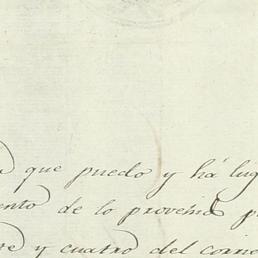 que puedo y há lug
ento de lo proveido p
re y cuatro del corrie